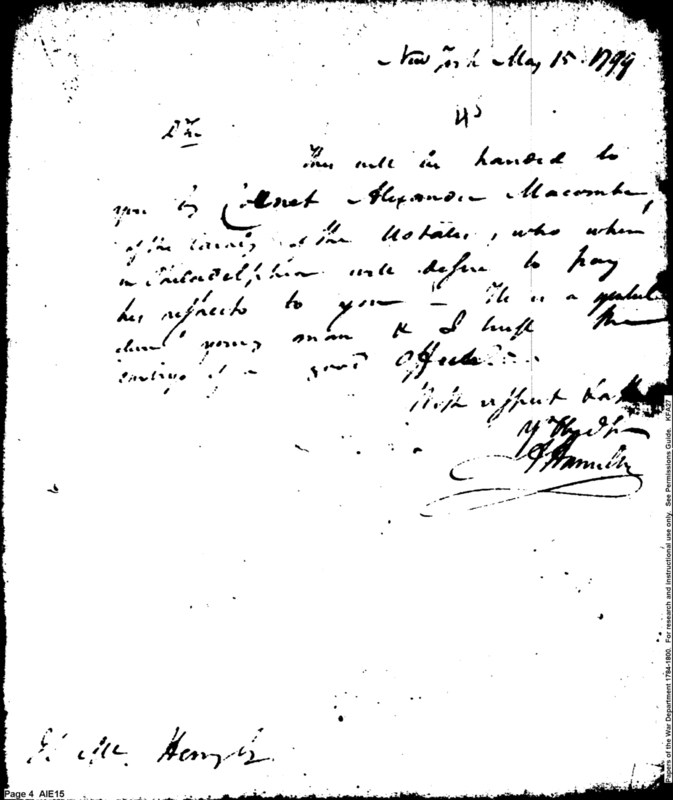 New York May 15. 1799
Sir
This will be handed to
you by Cornet Alexander Macomb,
of the Cavalry of the UStates, who when
in Philadelphia will desire to pay
his respects to you — He is a
young man & I trust the
embryo of a good officer.
With respect
Yr Obed Sr
A Hamilton
Mc. Henry
Page 4 AIE15
Papers of the War Department 1784-1800. For research and instructional use only. See Permissions Guide. KFA27